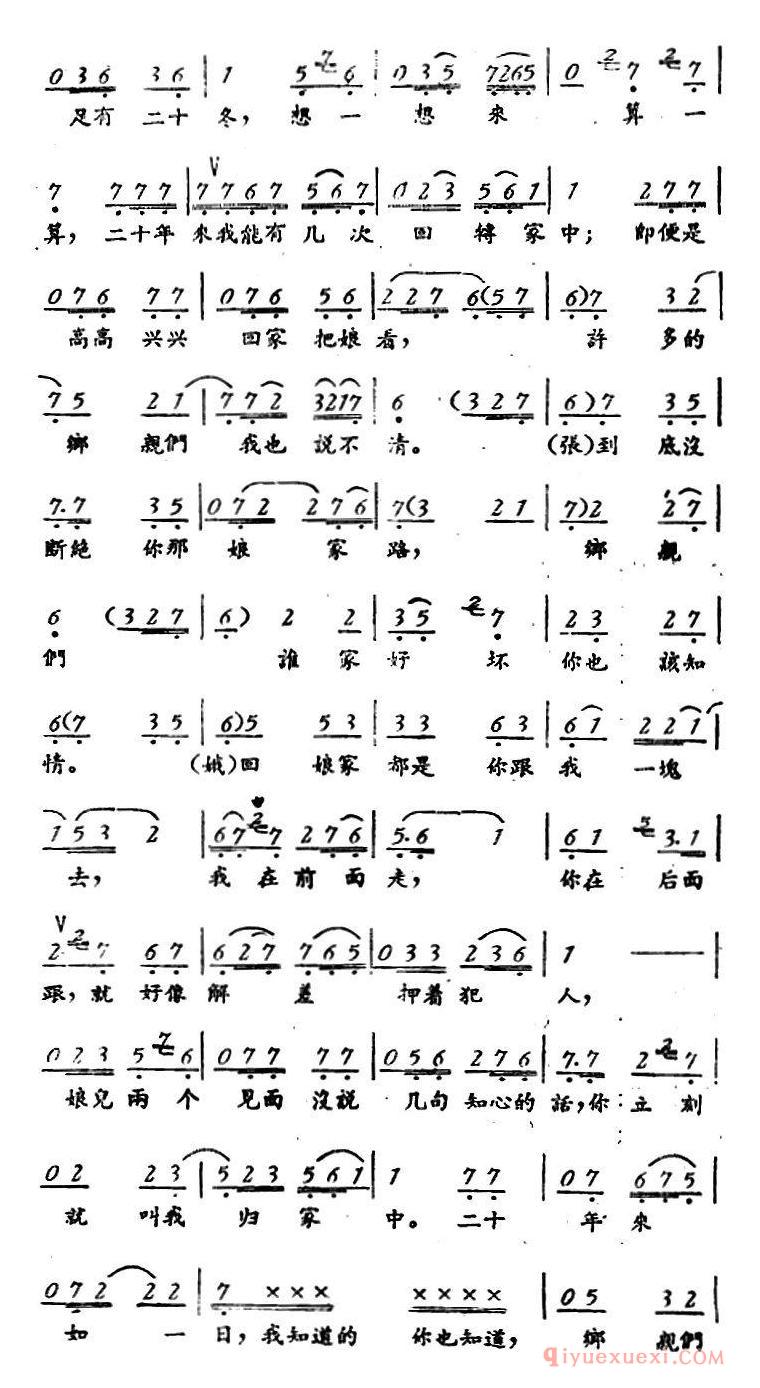 0 3 6 3 6 | 1 5 7 6 | 0 3 5 7265 | 0 2 7 2 7 |
足有 二十 冬，想一 想來 算一
7 7 7 7 | 7 7 6 7 5 6 7 | 0 2 3 5 6 1 | 1 2 7 7 |
算，二十年 來我能有 几 次 回 轉 家 中；即便是
0 7 6 7 7 | 0 7 6 5 6 | 2 2 7 6(5 7 | 6)7 3 2 |
高高 兴兴 回家 把娘 看， 許 多的
7 5 2 1 | 7 7 2 3217 | 6 (3 2 7 | 6)7 3 5 |
鄉 親們 我也 説不 清。 (張)到 底沒
7.7 3 5 | 0 7 2 2 7 6 | 7(3 2 1 | 7)2 2 7 |
断絕 你那 娘 家 路， 鄉 親
6 (3 2 7 | 6) 2 2 | 3 5 2 7 | 2 3 2 7 |
們 誰 家 好 坏 你也 該知
6(7 3 5 | 6)5 5 3 | 3 3 6 3 | 6 1 2 2 1 |
情。 (娥)回 娘家 都是 你跟 我 一塊
1 5 3 2 | 6 7 2 7 2 7 6 | 5.6 1 | 6 1 5 3.1 |
去， 我 在 前 面 走， 你在 后面
2 2 7 6 7 | 6 2 7 7 6 5 | 0 3 3 2 3 6 | 1 —— |
跟，就 好像 解 差 押着 犯 人，
0 2 3 5 7 6 | 0 7 7 7 7 | 0 5 6 2 7 6 | 7.7 2 7 |
娘兒 兩 个 見面 沒説 几句 知心的 話，你 立刻
0 2 2 3 | 5 2 3 5 6 1 | 1 7 7 | 0 7 6 7 5 |
就 叫我 归 家 中。二十 年 來
0 7 2 2 2 | 7 × × × | × × × × | 0 5 3 2 |
如 一 日，我知道的 你也知道， 鄉 親們
qiyuexuexi.com